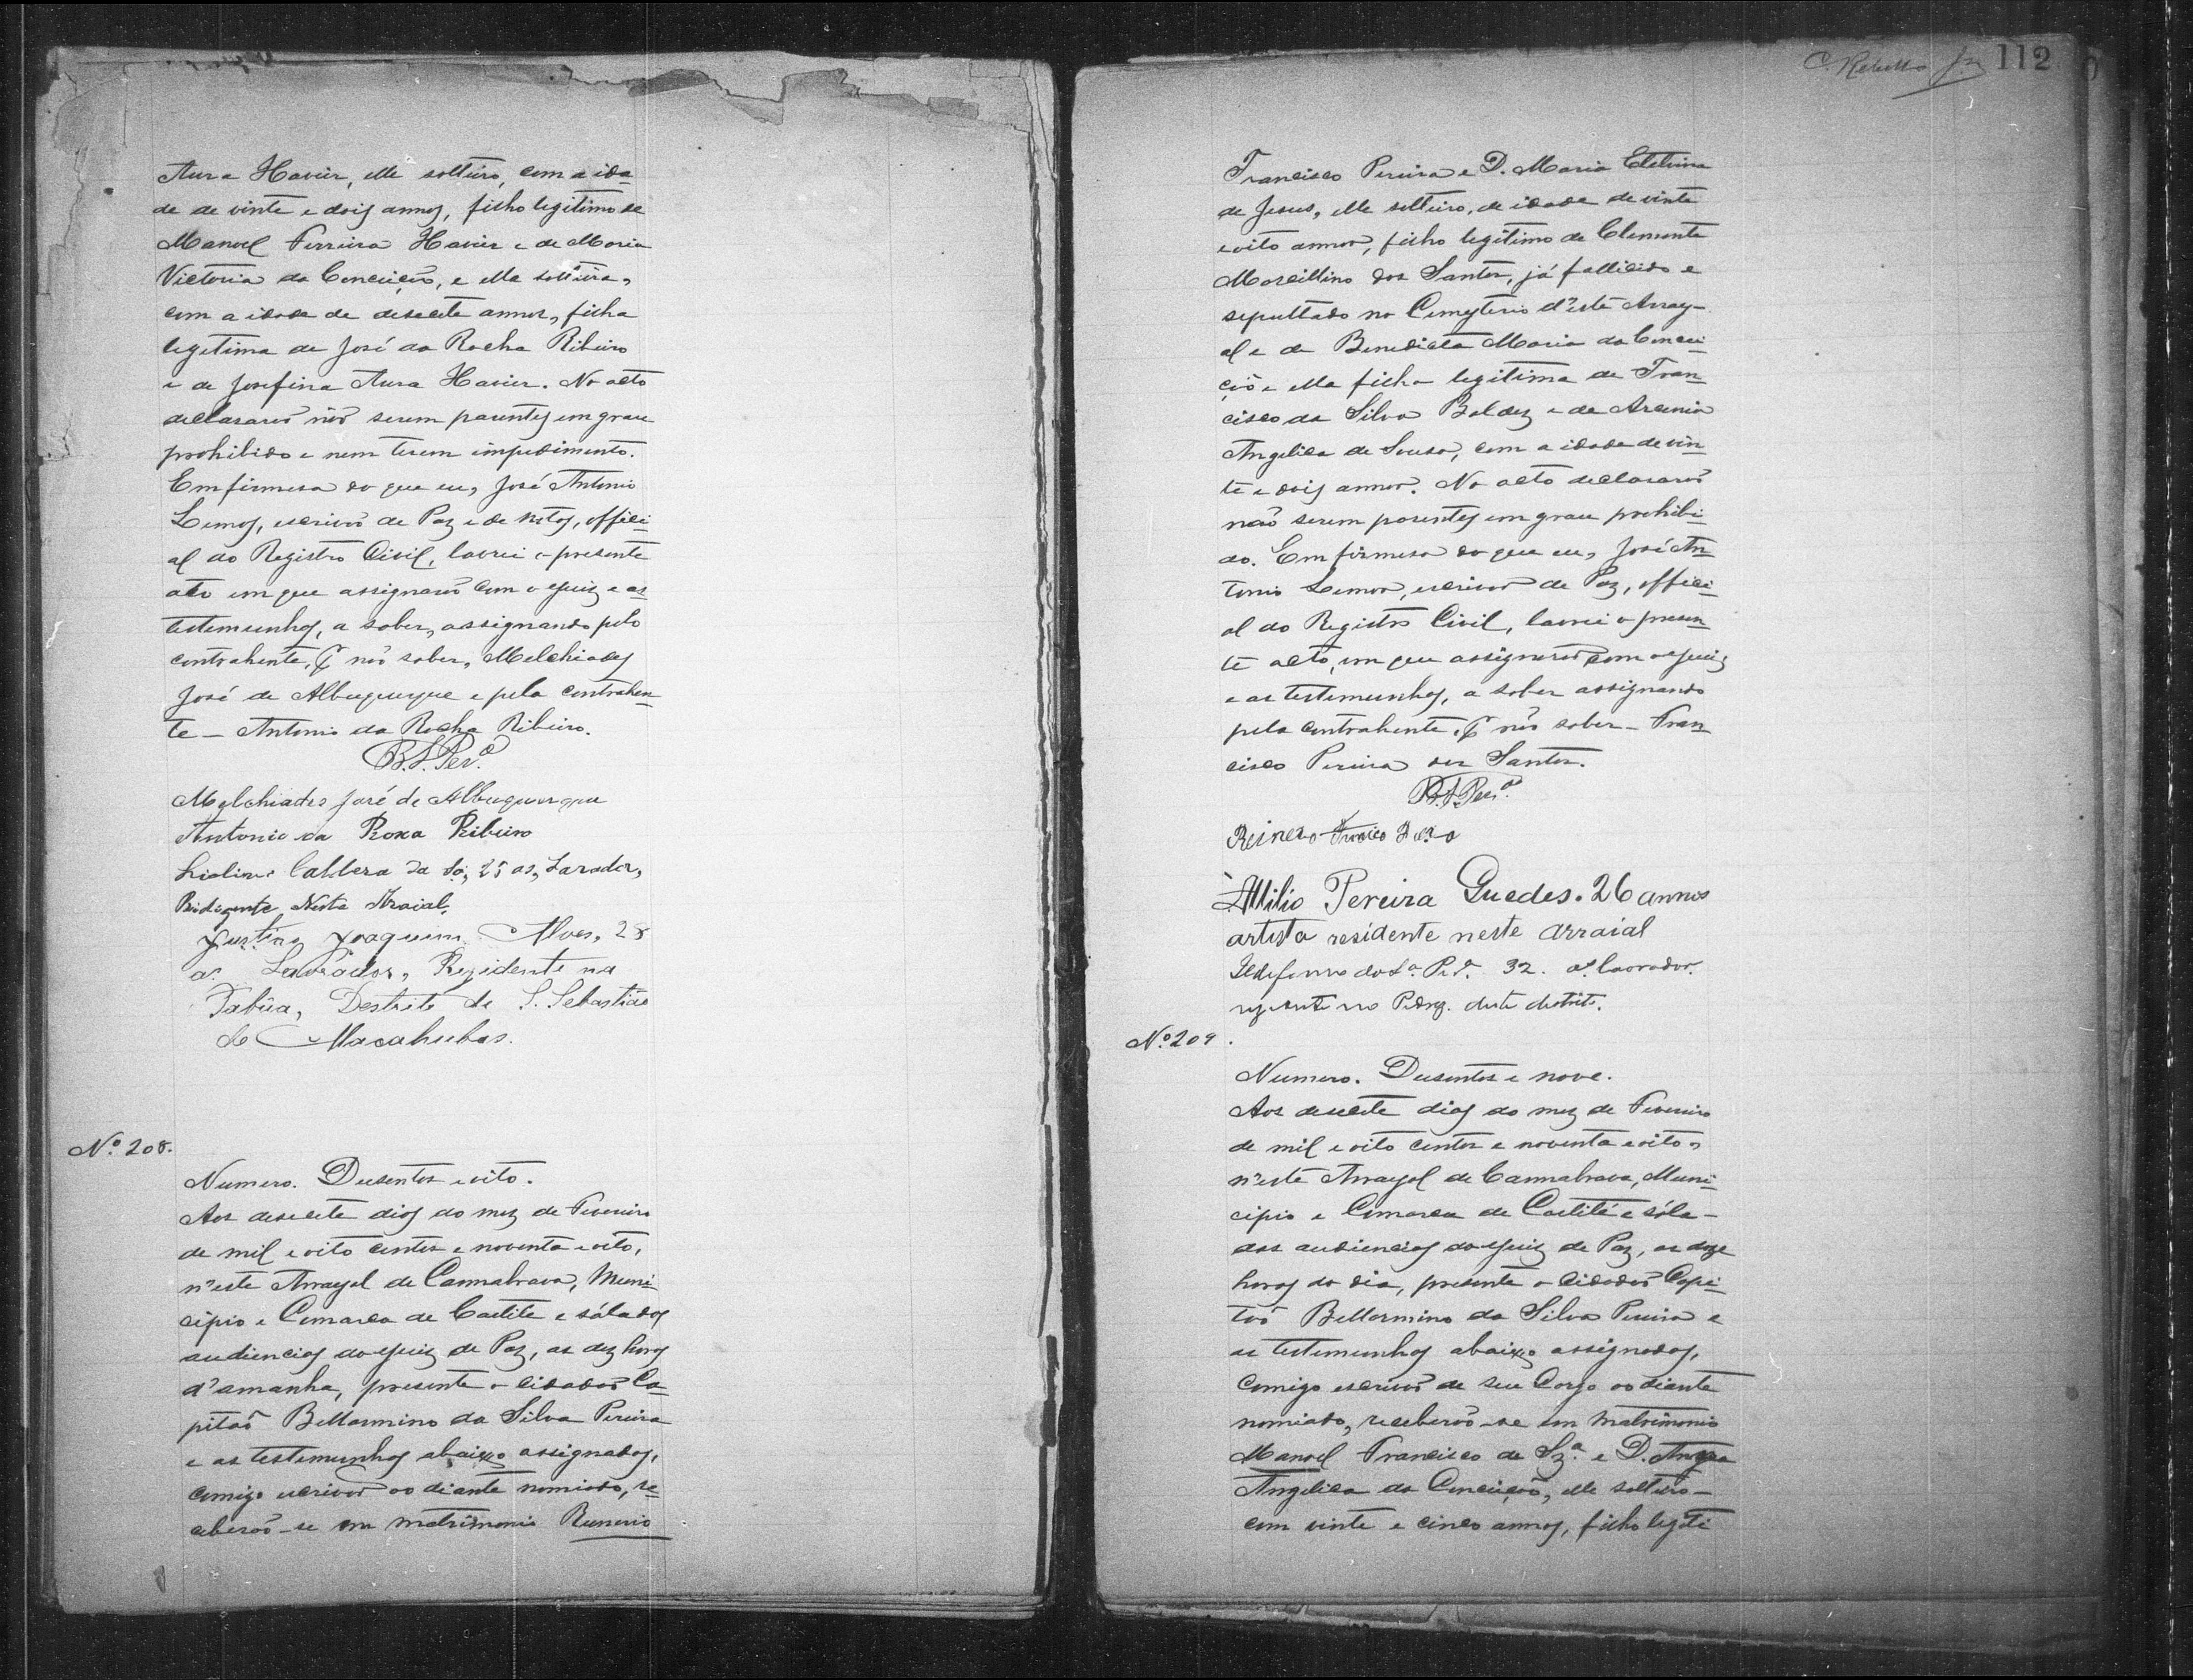 Aura Havier, elle solteiro, com a ida-
de de vinte e dois annos, filho legitimo de
Manoel Ferreira Havier e de Maria
Victoria da Conceição, e ella solteira,
com a idade de desecete annos, filha
legitima de José da Rocha Ribeiro
e de Josefina Aura Havier. No acto
declararão não serem parentes em grau
prohibido e nem terem impedimento.
Em firmesa do que eu, José Antonio
Lemos, escrivão de Paz e de Notas, offici-
al do Registro Civil, lavrei o presente
acto em que assignarão com o Juiz e as
testemunhas, a saber, assignando pelo
contrahente, q̃ não saber, Melchiades
José de Albuquerque e pela contrahen-
te — Antonio da Rocha Ribeiro.
B.S.Per.ª
Melchiades José de Albuquerque
Antonio da Roxa Ribeiro
Caldera da 25 as, Lavrador,
Residente Nesta Araial,
Justino Joaquim Alves, 28
a. Lavrador, Rezidente na
Tabúa, Destrito de S. Sebastião
de Macahubas.
Nº 208.
Numero. Dusentos e oito.
Aos desecete dias do mez de Fevereiro
de mil e oito centos e noventa e oito,
n'este Arrayal de Cannabrava, Muni-
cipio e Comarca de Caetité e sála das
audiencias do Juiz de Paz, as dez horas
d'amanha, presente o cidadão Ca-
pitão Bellarmino da Silva Pereira
e as testemunhas abaixo assignadas,
comigo escrivão ao diante nomiado, re-
ceberão-se em matrimonio Runerio
C. Rebello 112
Francisco Pereira e D. Maria Etelvina
de Jesus, elle solteiro, de idade de vinte
e oito annos, filho legitimo de Clemente
Marcillino dos Santos, já fallicido e
sepultado no Cemyterio d'este Array-
al e de Benedicta Maria da Concei-
ção e ella filha legitima de Fran-
cisco da Silva Baldez e de Arcenia
Angelica de Sousa, com a idade de vin-
te e dois annos. No acto declararão
não serem parentes em grau prohibi-
do. Em firmesa do que eu, José An-
tonio Lemos, escrivão de Paz, offici-
al do Registro Civil, lavrei o presen-
te acto, em que assignarão com o Juiz
e as testemunhas, a saber assignando
pela contrahente, q̃ não saber — Fran-
cisco Pereira dos Santos.
B.S.Per.ª
Attilio Pereira Guedes. 26 annos
artista residente neste arraial
Ildefonso da S.ª P.rª. 32. as. lavrador.
residente no deste distrito.
Nº 209.
Numero. Dusentos e nove.
Aos desecete dias do mez de Fevereiro
de mil e oito centos e noventa e oito,
n'este Arrayal de Cannabrava, Muni-
cipio e Comarca de Caetité e sála —
das audiencias do Juiz de Paz, as doze
horas do dia, presente o cidadão Capi-
tão Bellarmino da Silva Pereira e
as testemunhas abaixo assignadas,
comigo escrivão de seu Cargo ao diante
nomiado, receberão-se em matrimonio
Manoel Francisco de Sz.ª e D.
Angelica da Conceição, elle solteiro —
com vinte e cinco annos, filho legiti